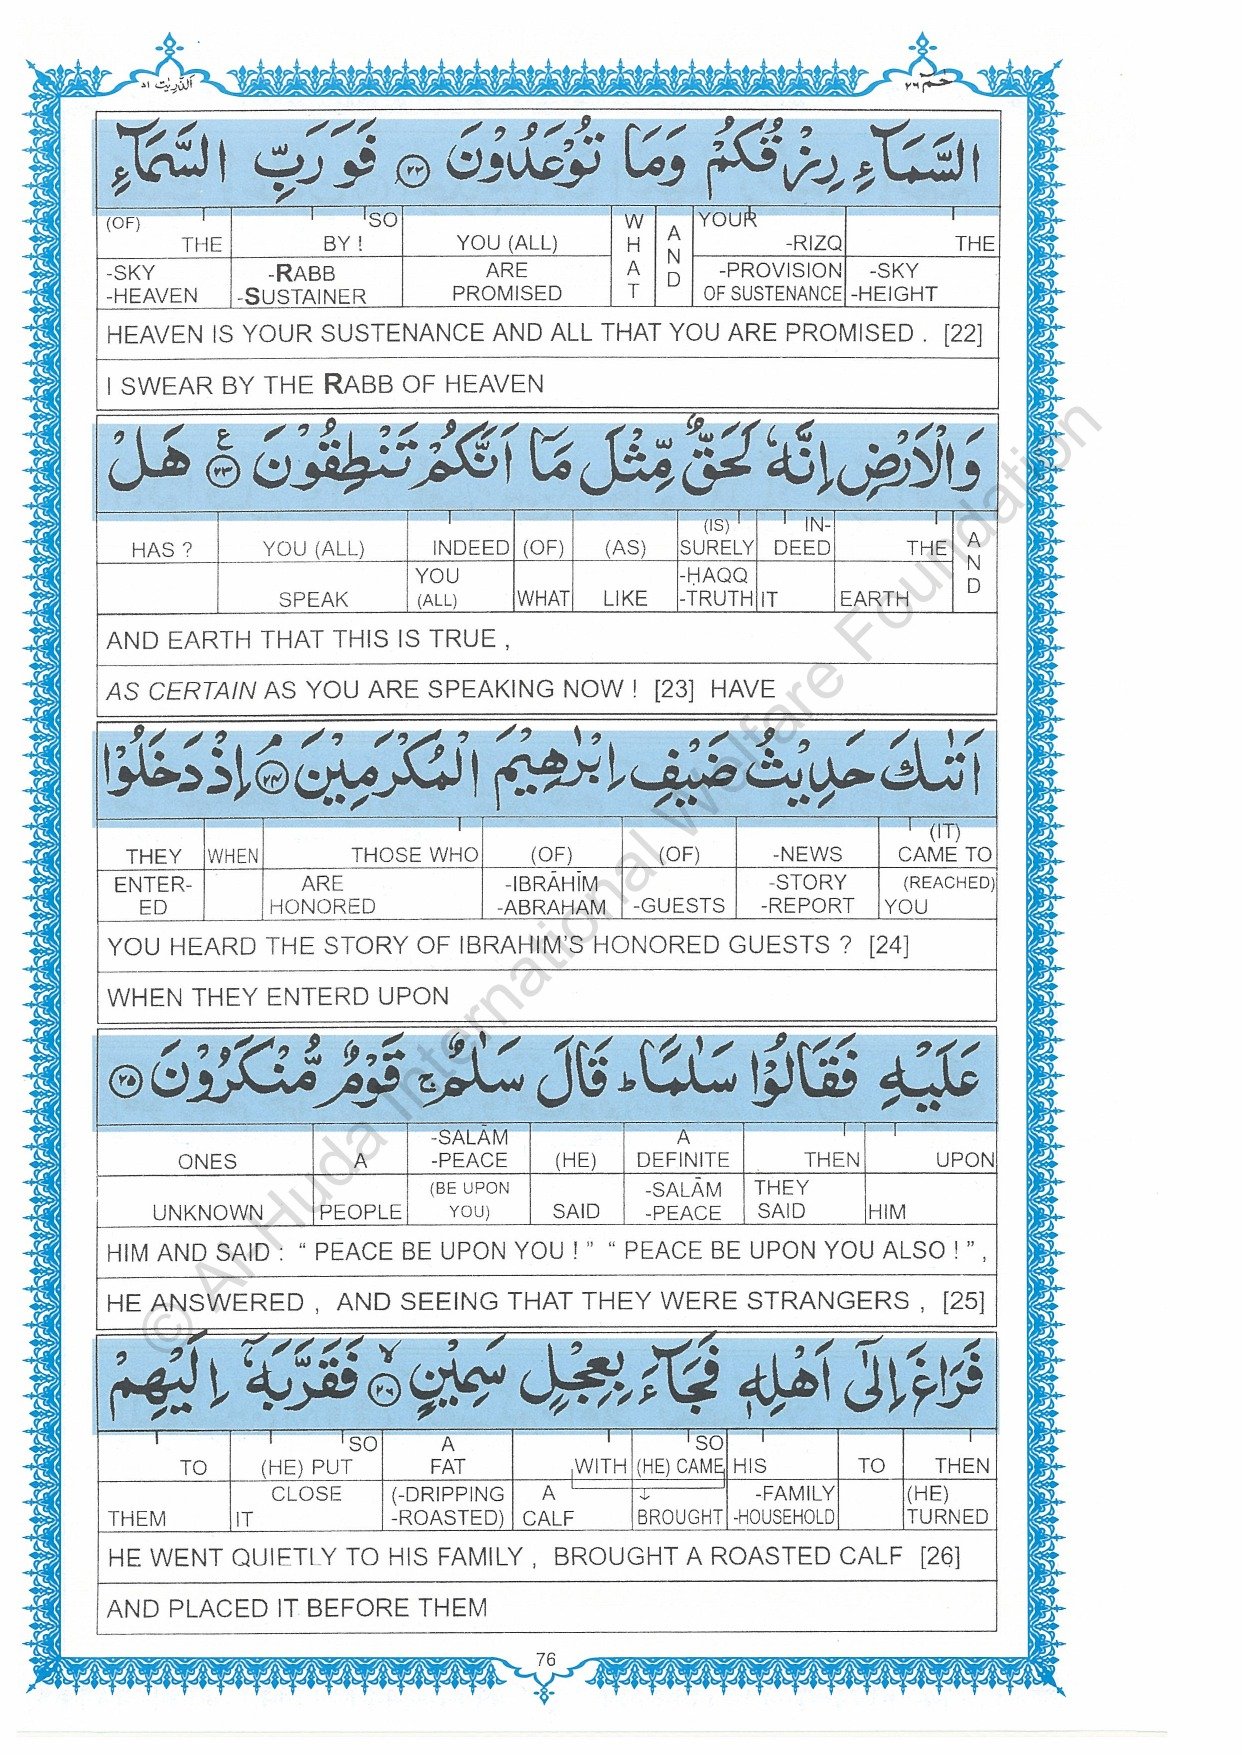 الذّٰرِيٰت ٥١
حٰمٓ ٢٦
السَّمَآءِ رِزْقُكُمْ وَمَا تُوْعَدُوْنَ ﴿٢٢﴾ فَوَرَبِّ السَّمَآءِ
(OF) THE SO BY ! YOU (ALL) WHAT AND YOUR -RIZQ THE
-SKY -HEAVEN -RABB -SUSTAINER ARE PROMISED -PROVISION OF SUSTENANCE -SKY -HEIGHT
HEAVEN IS YOUR SUSTENANCE AND ALL THAT YOU ARE PROMISED . [22]
I SWEAR BY THE RABB OF HEAVEN
وَالْاَرْضِ اِنَّهٗ لَحَقٌّ مِّثْلَ مَآ اَنَّكُمْ تَنْطِقُوْنَ ﴿٢٣﴾ ع هَلْ
HAS ? YOU (ALL) INDEED (OF) (AS) (IS) SURELY IN- DEED THE AND
SPEAK YOU (ALL) WHAT LIKE -ḤAQQ -TRUTH IT EARTH
AND EARTH THAT THIS IS TRUE ,
AS CERTAIN AS YOU ARE SPEAKING NOW ! [23] HAVE
اَتٰىكَ حَدِيْثُ ضَيْفِ اِبْرٰهِيْمَ الْمُكْرَمِيْنَ ﴿٢٤﴾ۘ اِذْ دَخَلُوْا
THEY WHEN THOSE WHO (OF) (OF) -NEWS (IT) CAME TO
ENTER- ED ARE HONORED -IBRĀHĪM -ABRAHAM -GUESTS -STORY -REPORT (REACHED) YOU
YOU HEARD THE STORY OF IBRAHIM'S HONORED GUESTS ? [24]
WHEN THEY ENTERD UPON
عَلَيْهِ فَقَالُوْا سَلٰمًا ؕ قَالَ سَلٰمٌ ۚ قَوْمٌ مُّنْكَرُوْنَ ﴿٢٥﴾
ONES A -SALĀM -PEACE (HE) A DEFINITE THEN UPON
UNKNOWN PEOPLE (BE UPON YOU) SAID -SALĀM -PEACE THEY SAID HIM
HIM AND SAID : “ PEACE BE UPON YOU ! ” “ PEACE BE UPON YOU ALSO ! ” ,
HE ANSWERED , AND SEEING THAT THEY WERE STRANGERS , [25]
فَرَاغَ اِلٰٓى اَهْلِهٖ فَجَآءَ بِعِجْلٍ سَمِيْنٍ ﴿٢٦﴾ۙ فَقَرَّبَهٗٓ اِلَيْهِمْ
TO SO (HE) PUT A FAT WITH SO (HE) CAME HIS TO THEN
THEM CLOSE IT (-DRIPPING -ROASTED) A CALF ↓ BROUGHT -FAMILY -HOUSEHOLD (HE) TURNED
HE WENT QUIETLY TO HIS FAMILY , BROUGHT A ROASTED CALF [26]
AND PLACED IT BEFORE THEM
76
© Al Huda International Welfare Foundation